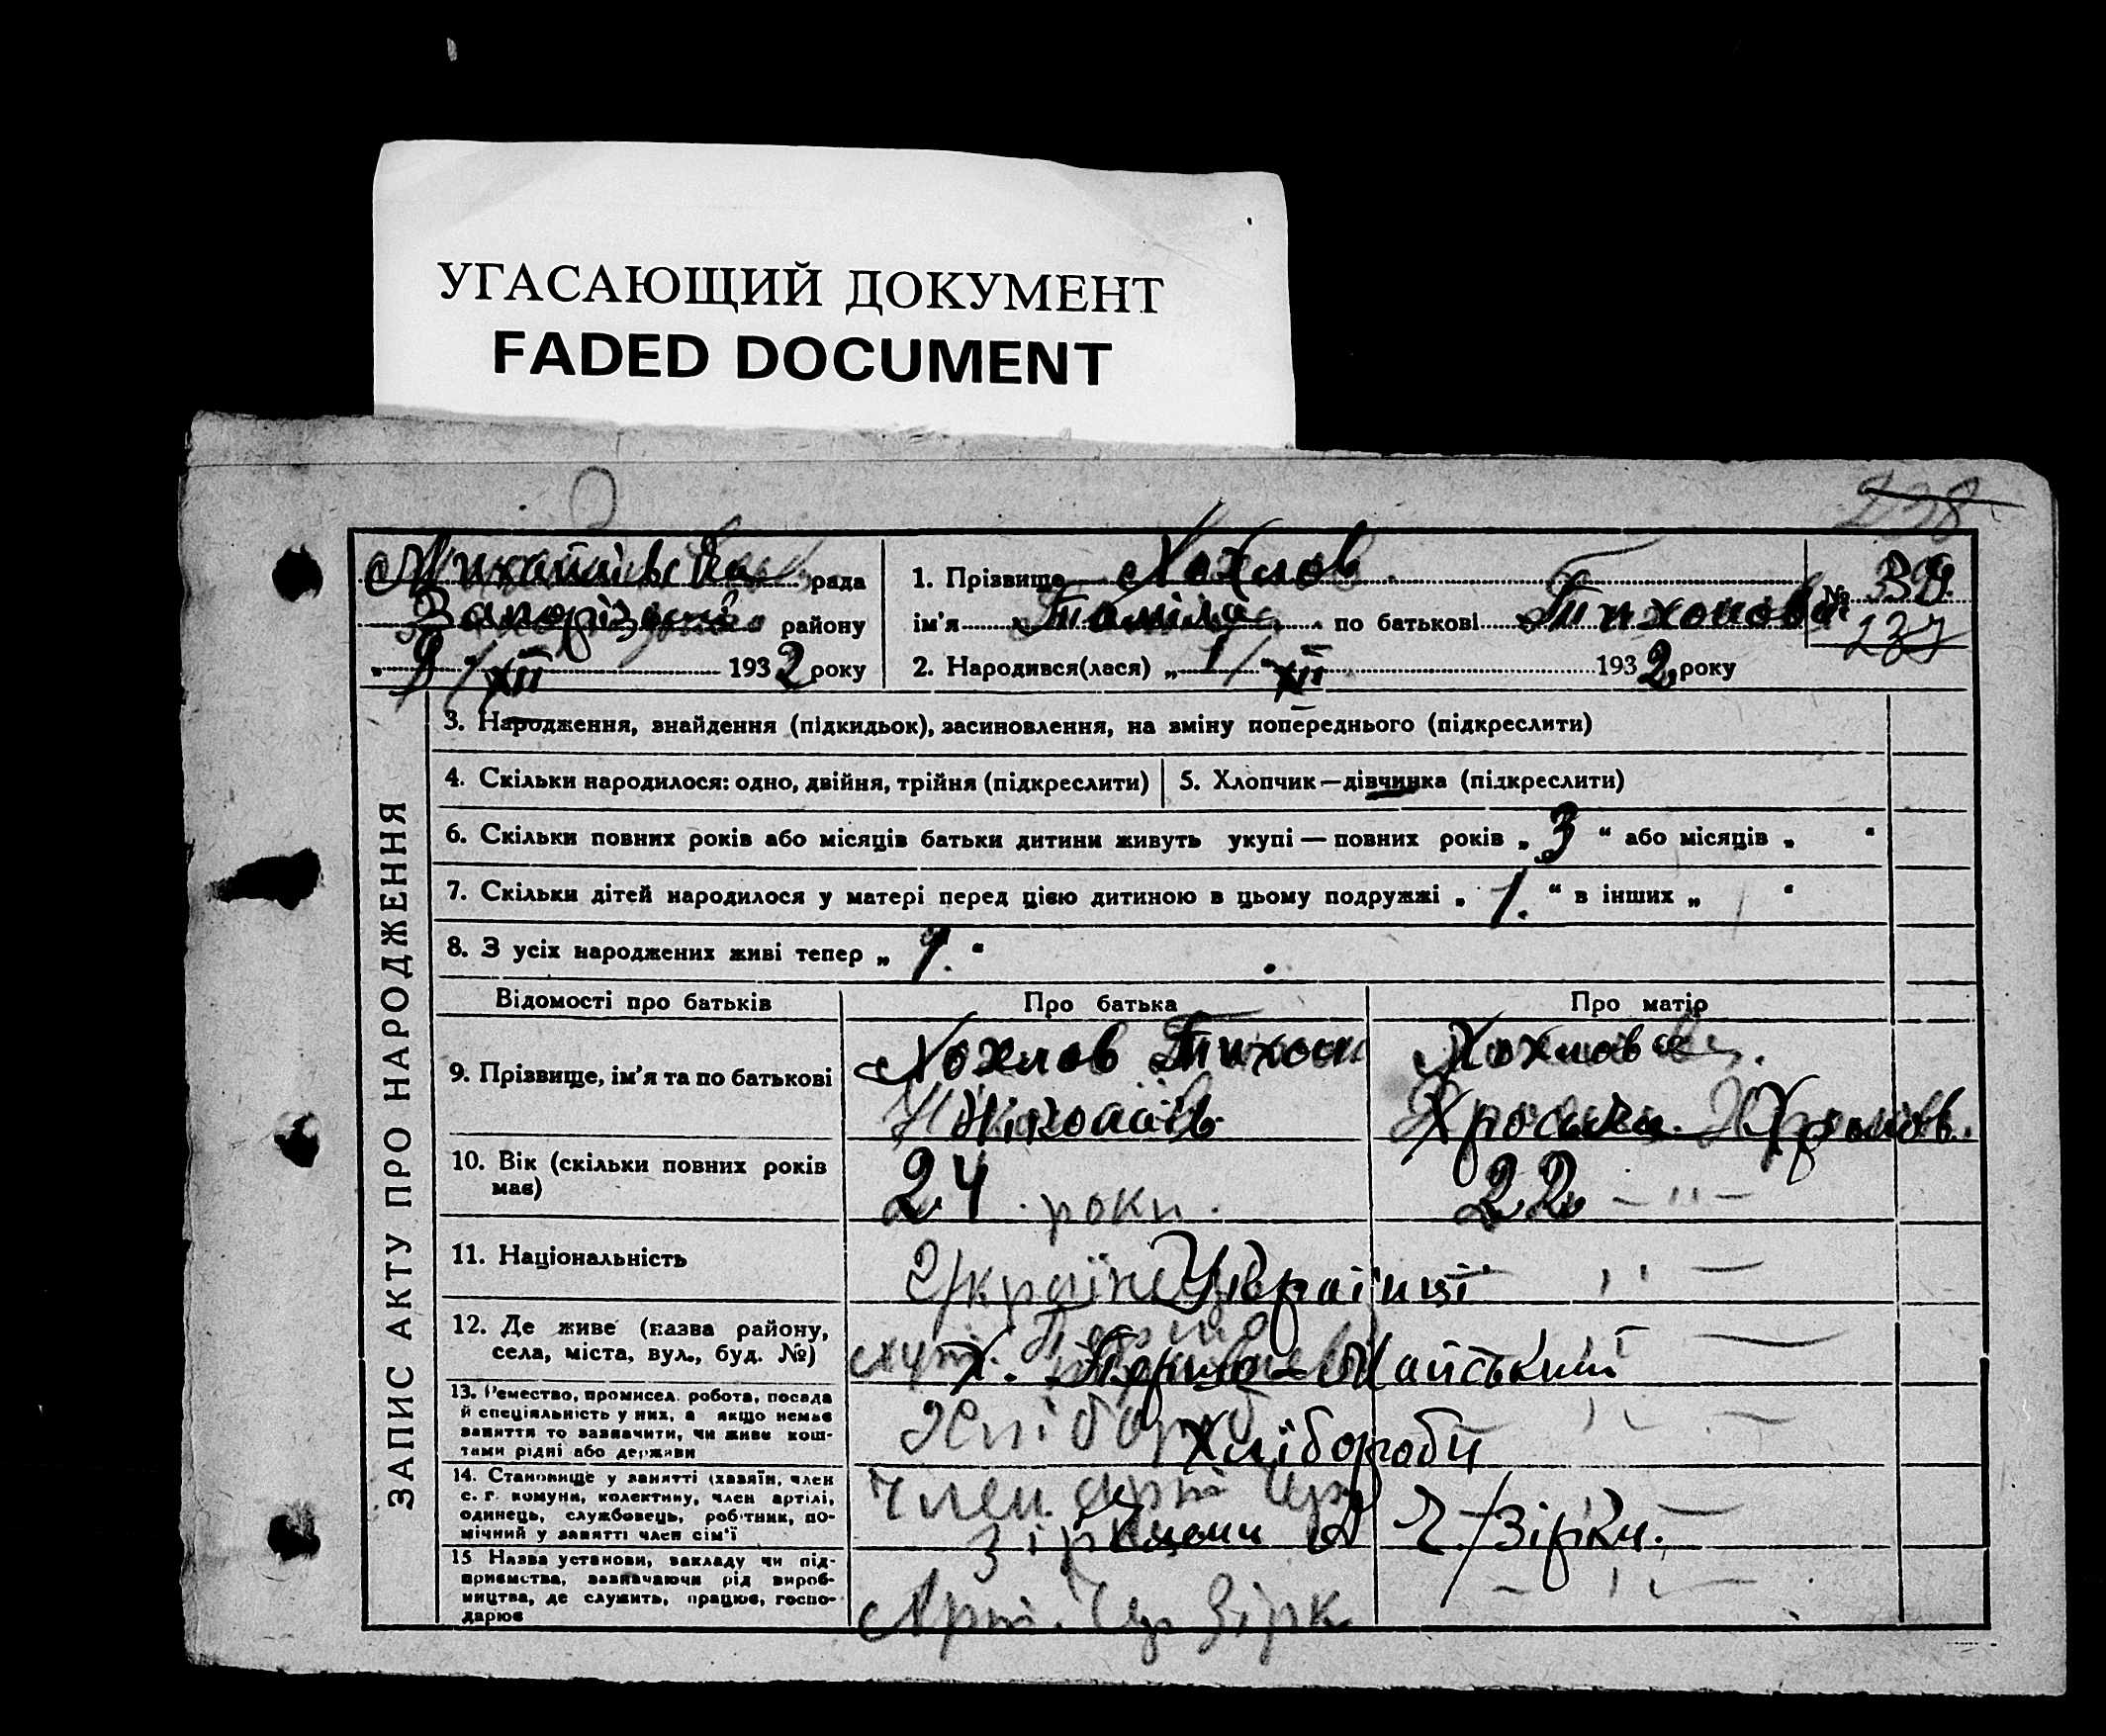 УГАСАЮЩИЙ ДОКУМЕНТ
FADED DOCUMENT
238
Михайлівська рада
Запорізький району
„ 9 / XII 1932 року
1. Прізвище Хохлов
№ 39
ім'я Таміла по батькові Тихонова
237
2. Народився(лася) „ 1 / " XII 1932 року
ЗАПИС АКТУ ПРО НАРОДЖЕННЯ
3. Народження, знайдення (підкидьок), засиновлення, на зміну попереднього (підкреслити)
4. Скільки народилося: одно, двійня, трійня (підкреслити)
5. Хлопчик—дівчинка (підкреслити)
6. Скільки повних років або місяців батьки дитини живуть укупі — повних років „ 3 “ або місяців „ “
7. Скільки дітей народилося у матері перед цією дитиною в цьому подружжі „ 1. “ в інших „ “
8. З усіх народжених живі тепер „ 1. “
Відомості про батьків
Про батька
Про матір
9. Прізвище, ім'я та по батькові
Хохлов Тихон
Ніколаїв
Хохлова
10. Вік (скільки повних років
має)
24 роки.
22 – " –
11. Національність
Українці
12. Де живе (назва району,
села, міста, вул., буд. №)
х. Перво-Майський
13. Ремество, промисел, робота, посада
й спеціяльність у них, а якщо немає
заняття то зазначити, чи живе кош-
тами рідні або держави
Хлібороб
Хлібороби
14. Становище у занятті (хазяїн, член
с. г. комуни, колективу, член артілі,
одинець, службовець, робітник, по-
мічний у занятті член сім'ї
Член арт Чер
Зірк
Члени А Ч./Зірки.
15 Назва установи, закладу чи під-
приємства, зазначаючи рід вироб-
ництва, де служить, працює, госпо-
дарює
Арт. Чер Зірк